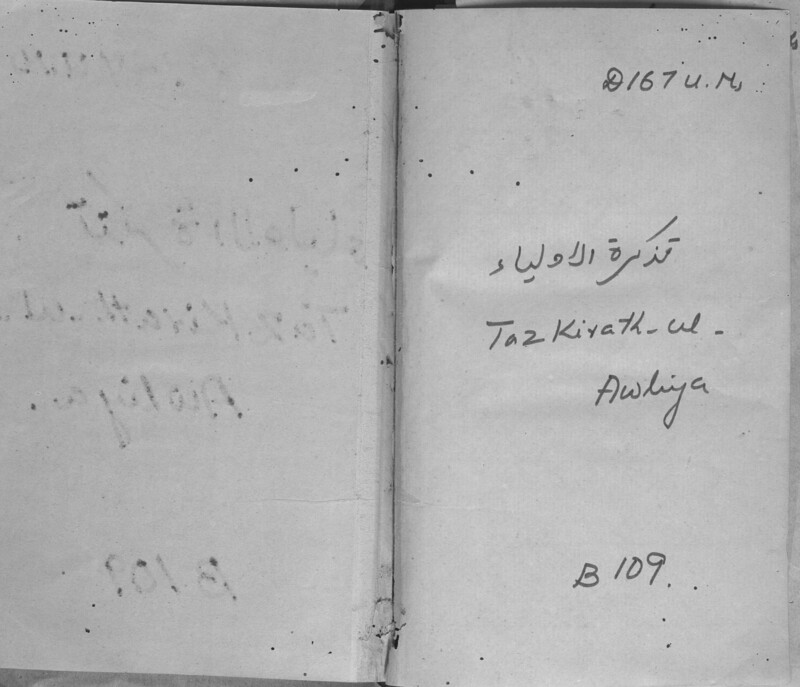 D167 U.M,
تذكرة الاولياء
Taz Kirath-ul-
Awliya
B 109.